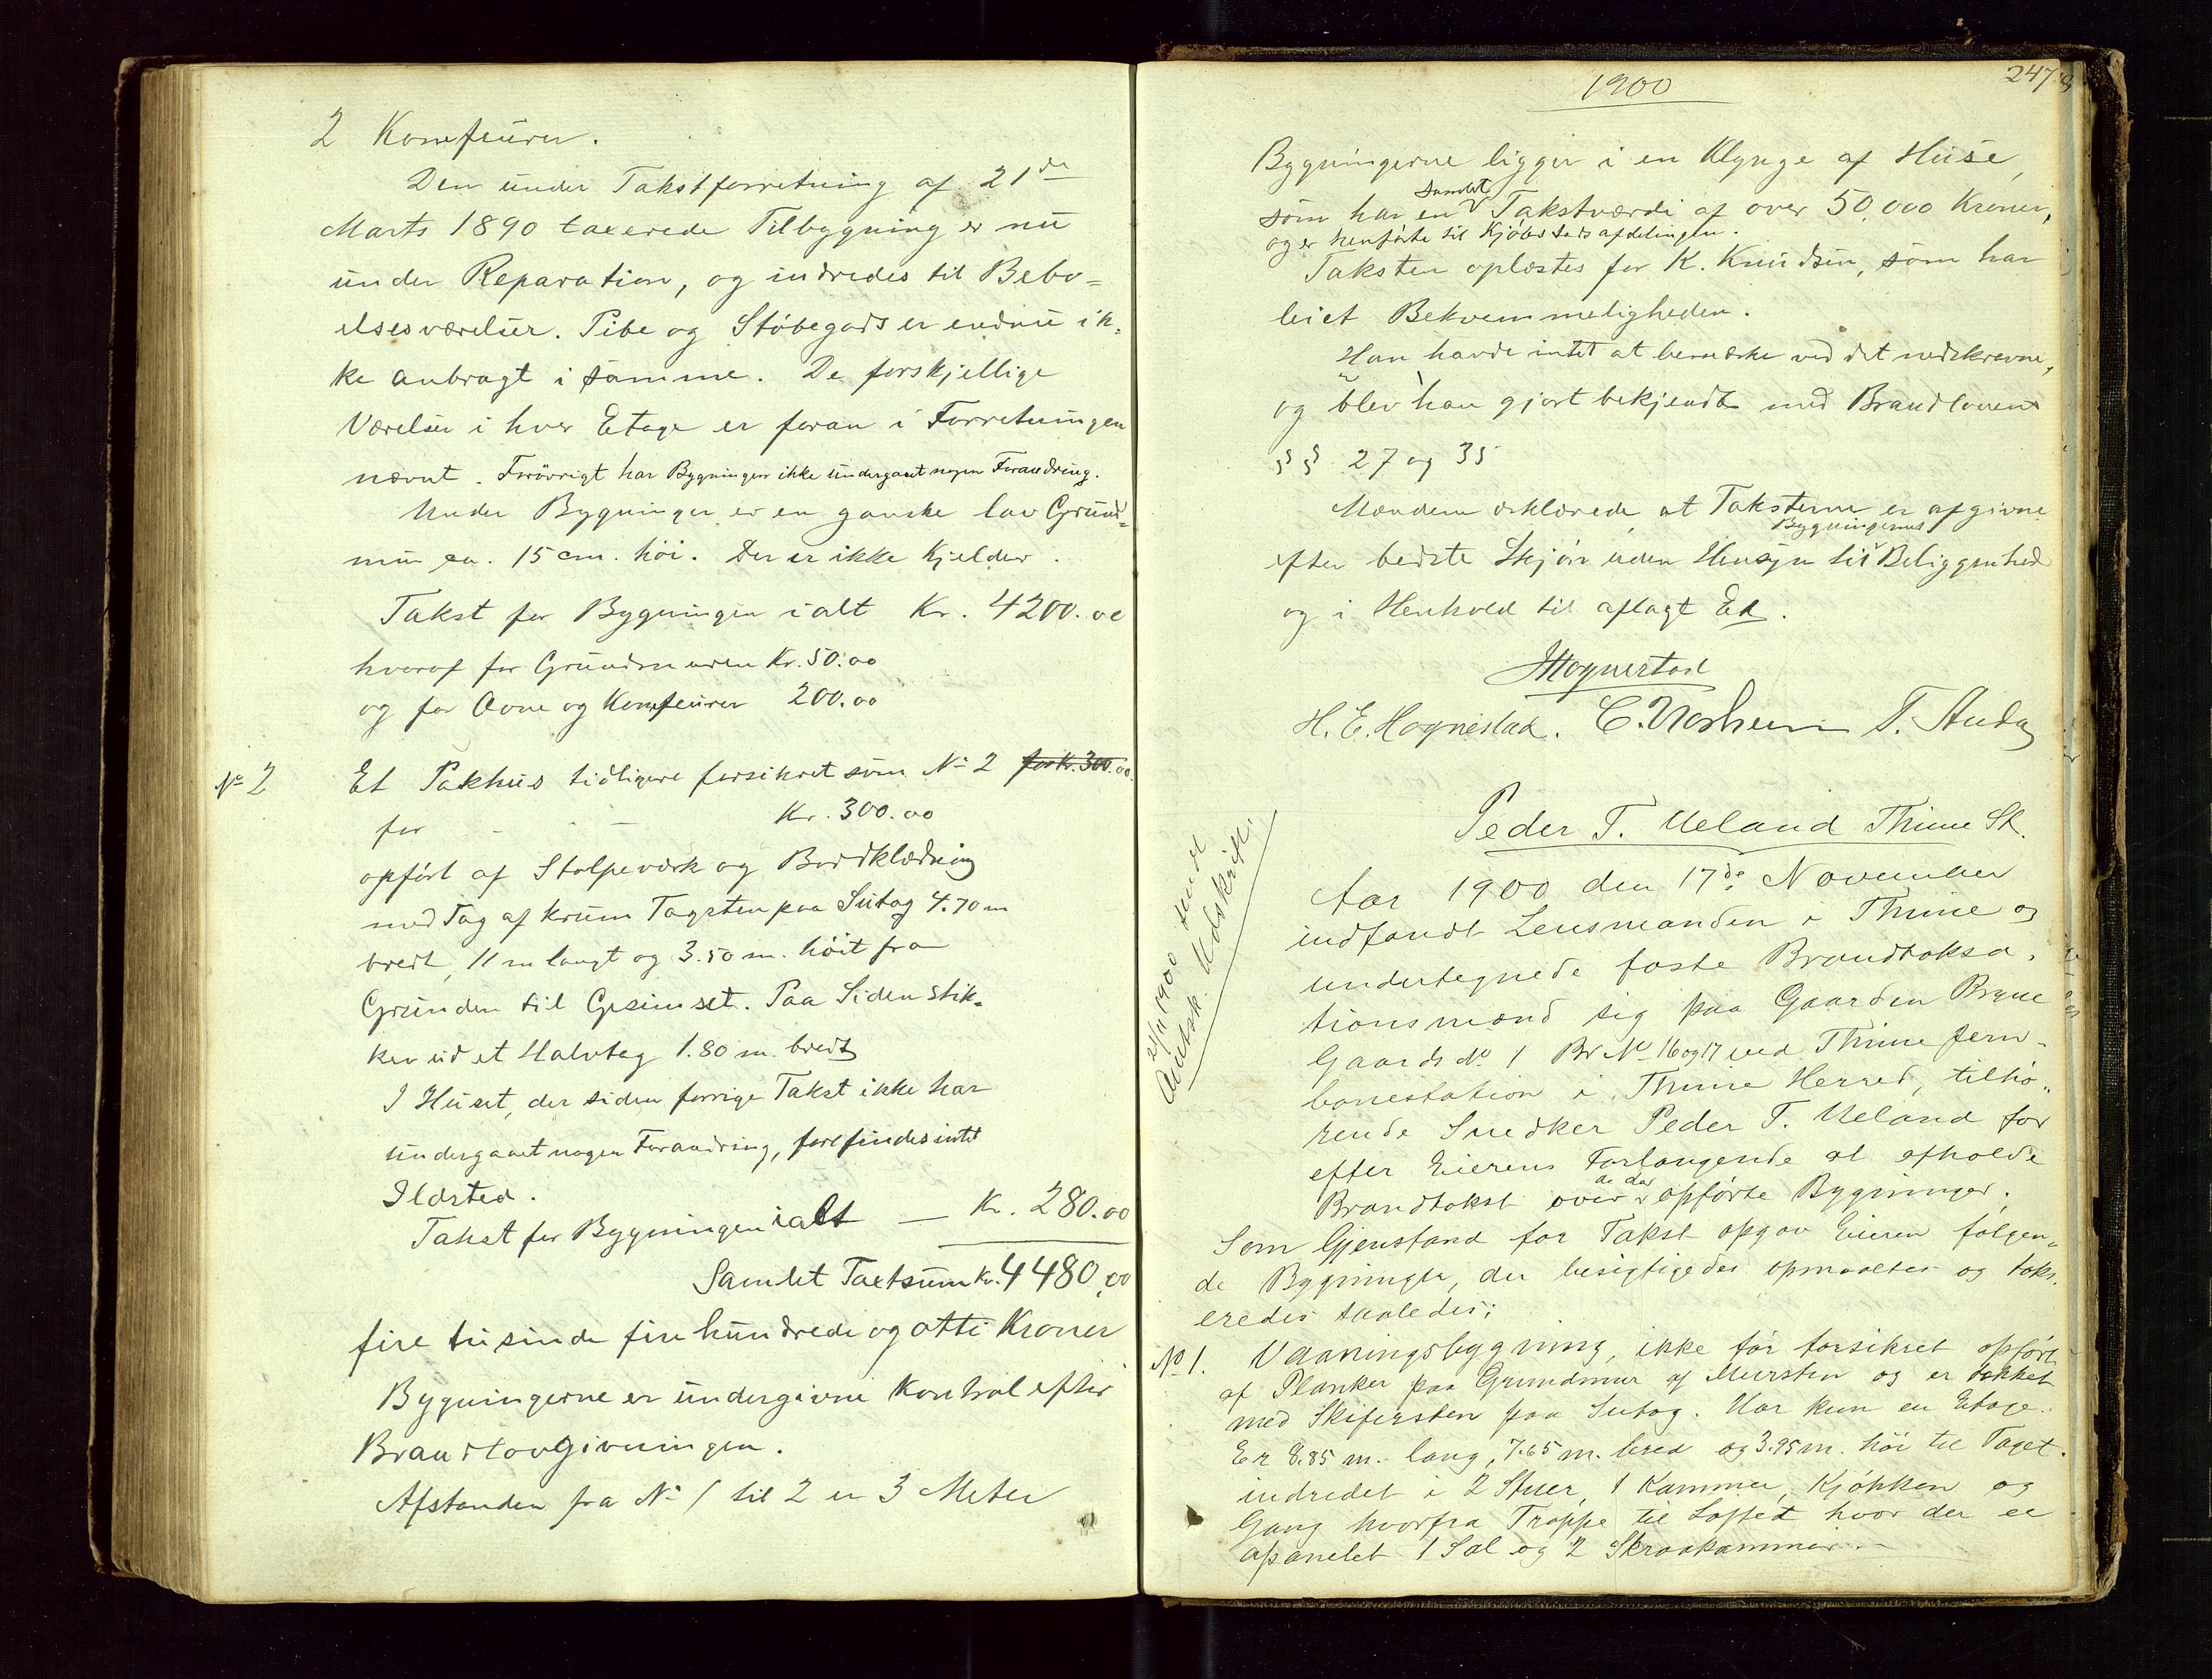 2 Komfeurer.
Den under Takstforretning af 21de
Marts 1890 taxerede Tilbygning er nu
under Reparation, og indredes til Bebo=
elsesværelser. Pibe og Støbegods er endnu ik=
ke anbragt i samme. De forskjellige
Værelser i hver Etage er foran i Forretningen
nævnt. Forøvrigt har Bygningen ikke undergaaet nogen Forandring.
Under Bygningen er en ganske lav Grund=
mur ca. 15 cm. høi. Der er ikke Kjelder.
Takst for Bygningen ialt Kr. 4200.00
hvoraf for Grundmuren Kr. 50.00
og for Ovne og Komfeurer 200.00
No 2 Et Pakhus tidligere forsikret som No 2 for Kr. 300.00.
for - - - Kr. 300.00
opført af Stolpeværk og Bordklædning
med Tag af krum Tagsten paa Sutag 4.70 m
bredt, 11 m langt og 3.50 m. høit fra
Grunden til Gesimset. Paa Siden stik=
ker ud et Halvtag 1.80 m. bredt
I Huset, der siden forrige Takst ikke har
undergaaet nogen Forandring, forefindes intet
Ildsted.
Takst for Bygningen ialt — Kr. 280.00
Samlet Taxtsum Kr. 4480,00
fire tusinde fire hundrede og otti Kroner
Bygningerne er undergivne Kontrol efter
Brandlovgivningen.
Afstanden fra No 1 til 2 er 3 Meter
1900
247
Bygningerne ligger i en Klynge af Huse,
som har en samlet Takstværdi af over 50.000 Kroner,
og er henførte til Kjøbstadsafdelingen.
Taksten oplæstes for K. Knudsen, som har
leiet Bekvemmeligheden.
Han havde intet at bemærke ved det nedskrevne,
og blev han gjort bekjendt med Brandlovens
§§ 27 og 35
Mændene erklærede at Taksterne er afgivne
efter bedste Skjøn uden Hensyn til Bygningernes Beliggenhed
og i Henhold til aflagt Ed.
H. E. Hognestad. T. Auda
21/11 1900 sendt
Autsk. Udskrift.
Peder T. Ueland Thime St.
Aar 1900 den 17de November
indfandt Lensmanden i Thime og
undertegnede faste Brandtaksa=
tionsmænd sig paa Gaarden Bryne
Gaards No. 1 Br No 16 og 17 ved Thime Jern=
banestation i Thime Herred, tilhø=
rende Snedker Peder T. Ueland for
efter Eierens Forlangende at afholde
Brandtakst over de der opførte Bygninger.
Som Gjenstand for Takst opgav Eieren følgen=
de Bygninger, der besigtigedes opmaaltes og taks=
eredes saaledes:
No 1. Vaaningsbygning, ikke før forsikret opført
af Planker paa Grundmur af Mursten og er tækket
med Skifersten paa Sutag. Har kun en Etage.
Er 8.85 m. lang, 7.65 m. bred og 3.95 m. høi til Taget.
indredet i 2 Stuer, 1 Kammer, Kjøkken og
Gang hvorfra Trappe til Loftet hvor der er
apanelet 1 Sal og 2 Skraakammer.